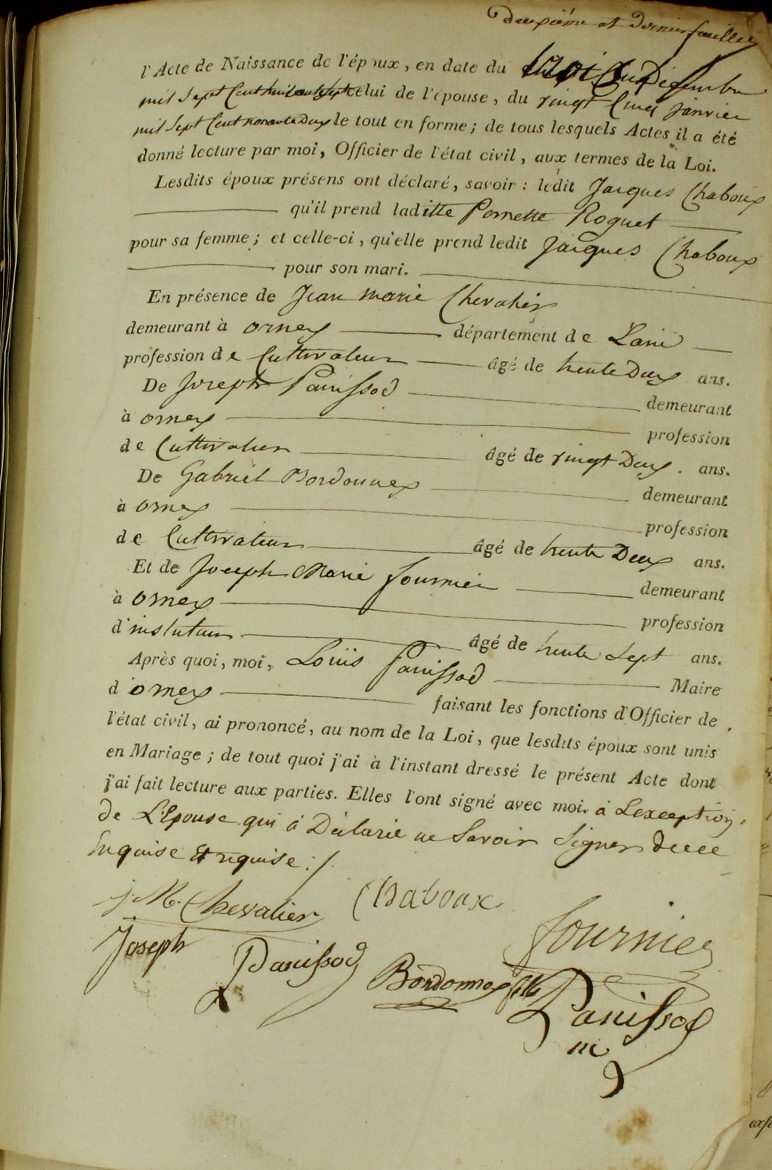 deuxième et dernier feuillet
l'Acte de Naissance de l'époux, en date du Décembre
mil Sept Cent huitante Sept celui de l'épouse, du vingt Cinq janvier
mil Sept Cent nonante Deux le tout en forme; de tous lesquels Actes il a été
donné lecture par moi, Officier de l'état civil, aux termes de la Loi.
Lesdits époux présens ont déclaré, savoir : ledit Jacques Chaboux
qu'il prend laditte Pernette Roguet
pour sa femme; et celle-ci, qu'elle prend ledit Jacques Chaboux
pour son mari.
En présence de Jean marie Chevalier
demeurant à ornex département de L'ain
profession de Cultivateur âgé de trente Deux ans.
De Joseph Panissod demeurant
à ornex profession
de Cultivateur âgé de vingt Deux. ans.
De Gabriel Bordonnex demeurant
à ornex profession
de Cultivateur âgé de trente Deux ans.
Et de Joseph Marie fournier demeurant
à ornex profession
d'instituteur âgé de trente Sept ans.
Après quoi, moi, Loüis Panissod Maire
d'ornex faisant les fonctions d'Officier de
l'état civil, ai prononcé, au nom de la Loi, que lesdits époux sont unis
en Mariage; de tout quoi j'ai à l'instant dressé le présent Acte dont
j'ai fait lecture aux parties. Elles l'ont signé avec moi. à Lexception
de L'Epouse qui à Déclaré ne Savoir Signer de ce
Enquise Et requise ./.
j. M. Chevalier Chaboux
fournier
Joseph Panissod Bordonnex
Panissod